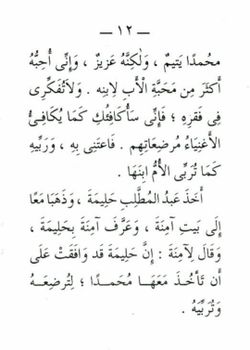 — ١٢ —
محُمدًا يَتيمٌ ، وَلٰكِنَّهُ عَزِيزٌ ، وَإنِّى أُحِبُّهُ
أكثَرَ مِن مَحَبَّةِ الْأَبِ لِابنِهِ . وَلَاتُفَكِّرِى
فِى فَقرِهِ ؛ فَإنِّى سَأُكَافِئُكِ كَمَا يُكَافِىُّ
الْأَغنِيَاءُ مُرضِعَاتِهِم . فَاعتَنِى بِهِ ، وَرَبِّيهِ
كَمَا تُرَبِّى الأُمُّ ابنَهَا .
أَخَذَ عَبدُ المُطَّلِبِ حَلِيمَةَ ، وَذَهَبَا مَعًا
إِلَى بَيتِ آمِنَةَ ، وَعَرَّفَ آمِنَةَ بِحَلِيمَةَ ،
وَقَالَ لِآمِنَةَ : إِنَّ حَلِيمَةَ قَد وَافَقَتْ عَلَى
أَن تَأخُذَ مَعَهَا مُحَمدًا ؛ لِتُرضِعَهُ
وَتُرَبِّيَهُ .